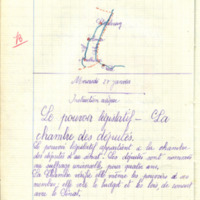 Mercredi 27 janvier
Instruction civique
Le pouvoir législatif - La
chambre des députés.
Le pouvoir législatif appartient à la chambre
des députés et au sénat. Les députés sont nommés
au suffrage universel pour quatre ans.
La Chambre vérifie elle même les pouvoirs de ses
membres; elle vote le budget et les lois de concert
avec le Sénat.